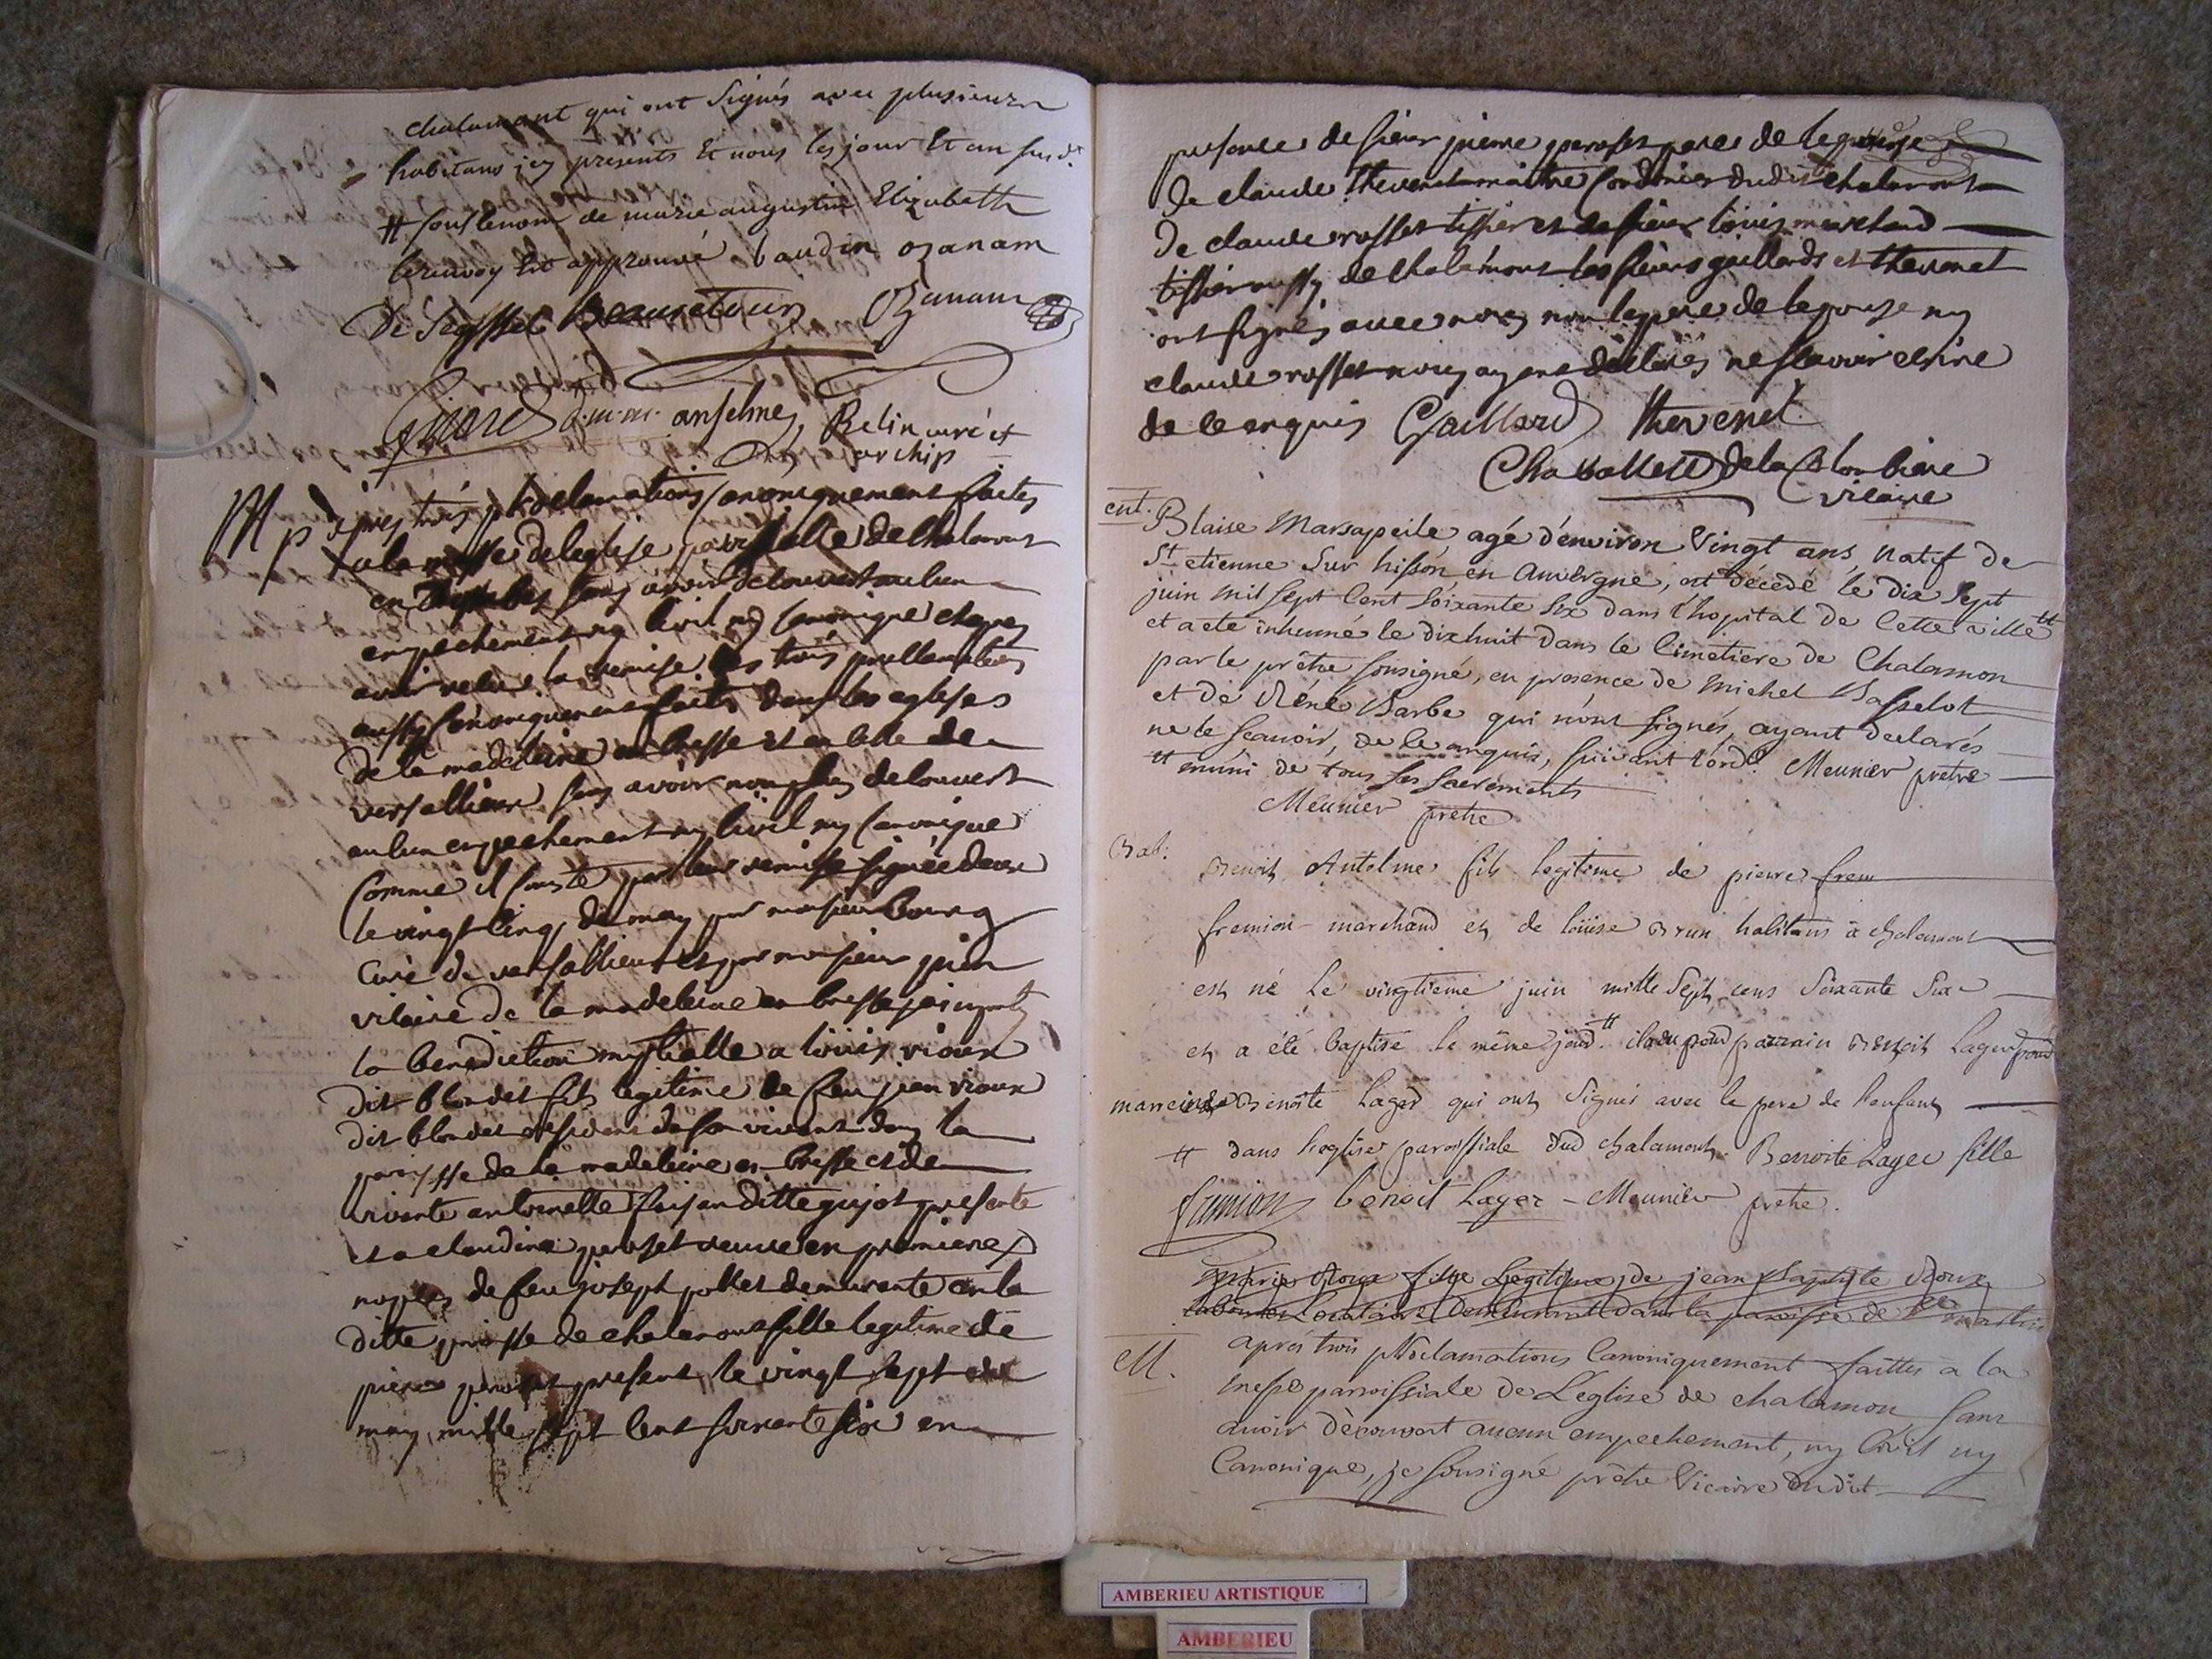 chalamont qui ont signés avec plusieurs
habitans icy presents Et nous les jour Et an susd.t
# sous le nom de marie augustine Elizabeth
le renvoy est approuvé baudin ozanam
De Seyssel Beauretour Ozanam
anselme, Belin curé et
archip
M apres trois proclamations canoniquement faites
a la messe de leglise paroissialle de chalamont
sans avoir découvert aucun
empechement ny civil ny canonique et apres
avoir recu la remise des trois proclamations
aussy canoniquement faites dans les eglises
de la madeleine en bresse et en celle de
versallieux sans avoir non plus decouvert
aucun empechement ny civil ny canonique
comme il conste par leur remise signée deux
le vingt cinq de may par monsieur bourg
curé de versallieux et par monsieur
vicaire de la madeleine en bresse jai imparti
la benediction nuptialle a loüis vioux
dit blondet fils legitime de feu jean vioux
dit blondet residant de son vivant dans la
paroisse de la madeleine en bresse et de
vivante antoinette ditte gujot presente
et a claudine peroset veuve en premieres
nopces de feu joseph pollet demeurante en la
ditte paroisse de chalamont fille legitime de
pierre peroset present, le vingt sept de
may mille sept cent soixante six en
presence de sieur pierre peroset pere de lepouse
de claude thevenet maitre cordonier dudit chalamont
de claude rosset tissier et de sieur loüis marchand
tissier aussy de chalamont les sieurs gaillards et thevenet
ont signés avec nous non le pere de lepouse ny
claude rosset nous ayant déclarés ne scavoir ecrire
de ce enquis Gaillard thevenet
Chavallet de la Colombiere
vicaire
ent. Blaise Marsapeile, agé d'environ Vingt ans, natif de
St etienne sur hisson en Auvergne, est décédé le dix sept
juin mil sept cent soixante six dans l'hopital de cette ville #
et a eté inhumé le dixhuit dans le Cimetiere de Chalamon
par le prêtre sousigné, en presence de Michel Basselot
et de René Barbe qui n'ont signés, ayant declarés
ne le scavoir, de ce enquis, suivant l'ord.e Meunier prêtre
# muni de tous ses sacrements
Meunier prêtre
Bat: Benoit Antelme fils legitime de pierre frem
fremion marchand et de loüise Brun habitans à chalamont
est né Le vingtieme juin mille Sept cens Soixante Six
et a été baptisé le même jour # il a eu pour parrain Benoit Lager pour
marreine Benoite Lager qui ont Signés avec le pere de l'enfant
# dans l'eglise paroissiale dud chalamont. Benoite Layer fille
frimion benoit Layer - Meunier prêtre.
Marie Roux fille Legitime de jean Baptiste Roux
demeurant dans la paroisse de St martin
M. aprés trois proclamations Canoniquement faittes a la
messe paroissiale de L'eglise de chalamon, sans
avoir découvert aucun empechement, ny Civil ny
Canonique, je sousigné prêtre Vicaire dudit
AMBERIEU ARTISTIQUE
AMBERIEU